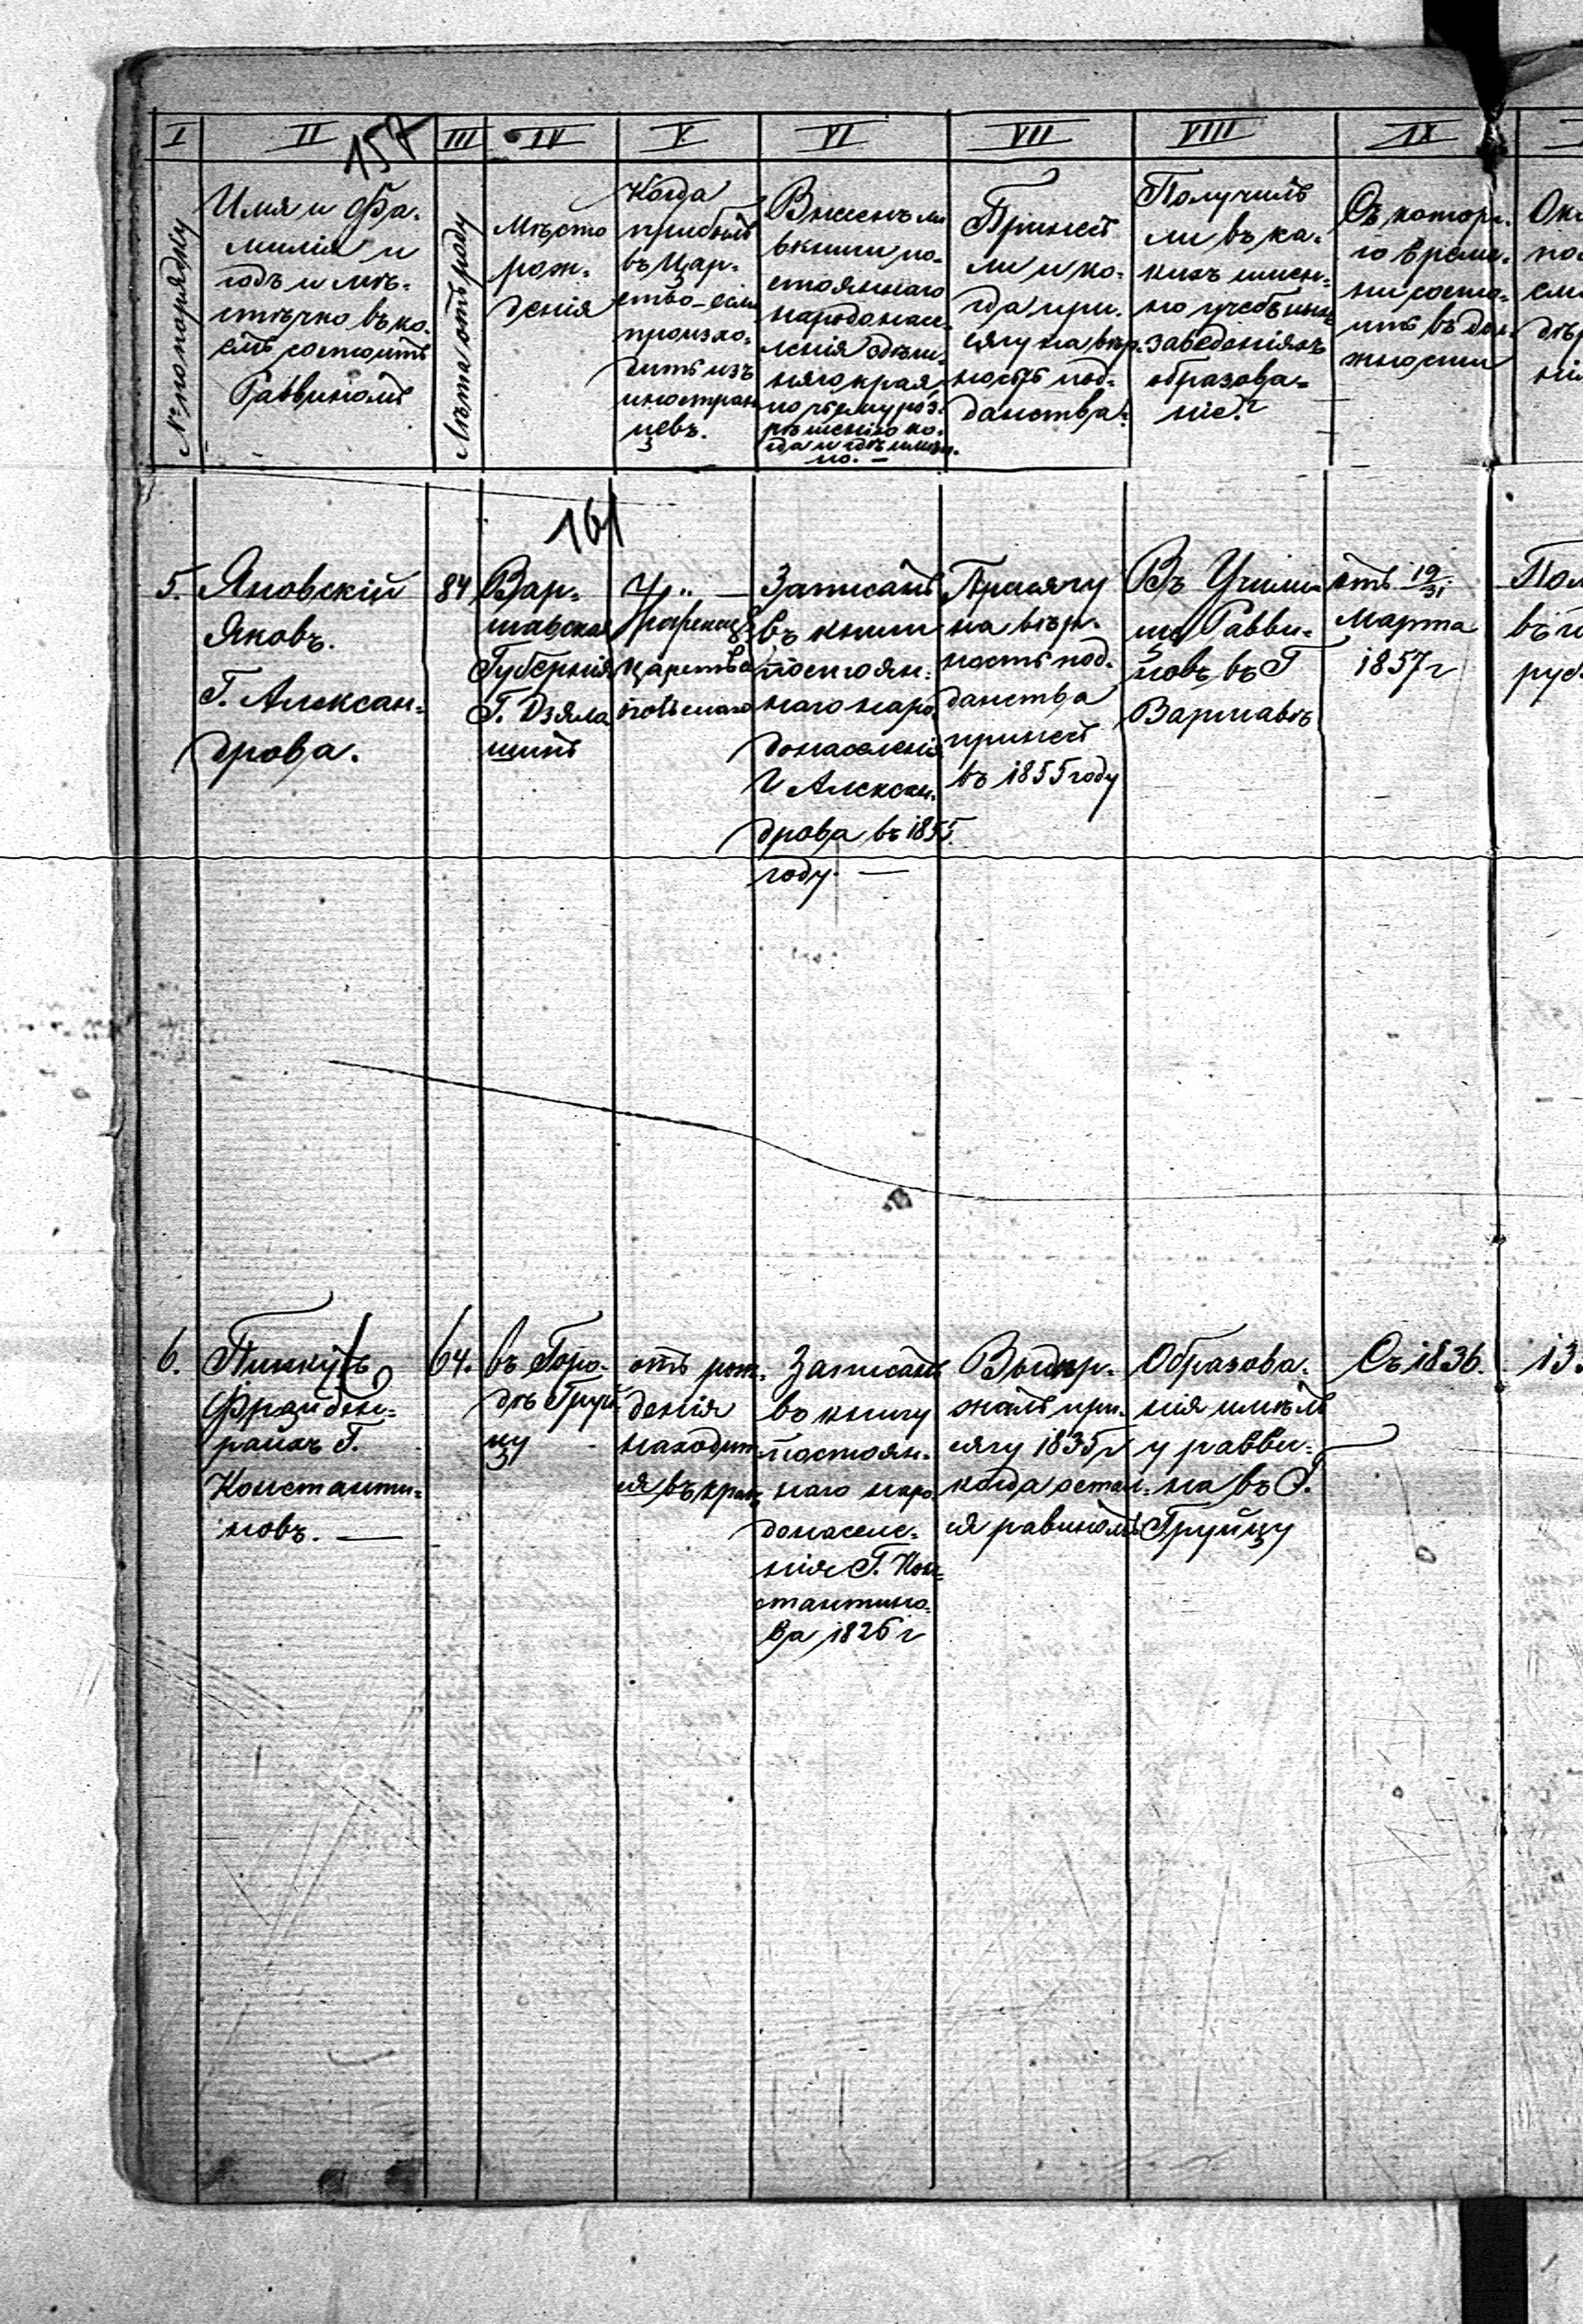 157
I II III IV V VI VII VIII IX
№ по порядку
Имя и Фа-
милія и
годъ и мѣ-
стечко въ ко-
емъ состоитъ
Раввиномъ
Лѣта отъ роду
Мѣсто
рож-
денія
Когда
прибылъ
въ Цар-
ство если
происхо-
дитъ изъ
иностран
цевъ.
Внесенъ ли
въ книги по-
стояннаго
народонасе-
ленія здѣш-
няго края,
по чьему раз-
рѣшенію ко-
гда и гдѣ имен-
но. —
Принесъ
ли и ко-
гда при-
сягу на вѣр-
ность под-
данства?
Получилъ
ли въ ка-
кихъ имен-
но учебныхъ
заведеніяхъ
образова-
ніе?
Съ котора-
го време-
ни состо-
итъ въ дол-
жности
161
5.
Яновскій
Яковъ.
Г. Алексан-
дрова.
84
Вар-
шавская
Губернія
Г. Дзяло
шинъ
Царства
Записанъ
въ книги
постоян-
наго наро
донаселенія
Г Алексан-
дрова въ 1855
году. —
Присягу
на вѣр-
ность под-
данства
принесъ
въ 1855 году
Въ Учили
щѣ Равви-
новъ въ Г
Варшавѣ
отъ 19/31
Марта
1857 г
6.
Пинкусъ
Фрайден-
райхъ Г.
Константи-
новъ. —
64.
въ Горо-
дѣ Груй
цу
отъ рож-
денія
находит
ся въ краѣ
Записанъ
въ книгу
постоян-
наго наро
донаселе-
нія Г. Кон-
стантино-
ва 1826 г
Выдер-
жалъ при-
сягу 1835 г
когда остал-
ся равиномъ
Образова-
нія имѣлъ
у равви-
на въ Г.
Груйцу
Съ 1836.
13.